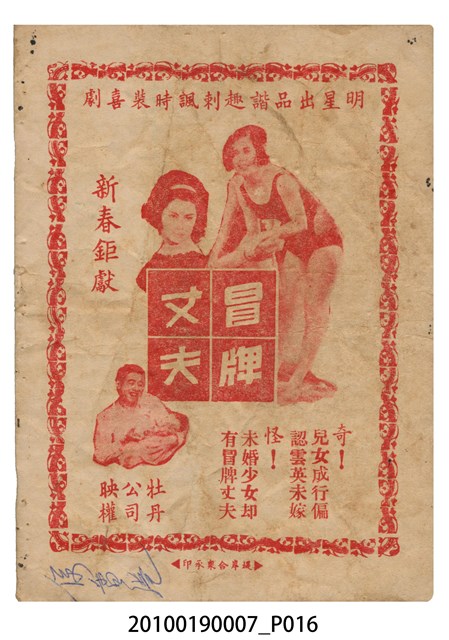 明星出品諧趣刺諷時裝喜劇
新春鉅獻
冒牌
丈夫
奇！
兒女成行偏
認雲英未嫁
怪！
未婚少女却
有冒牌丈夫
牡丹
公司
映權
20100190007_P016